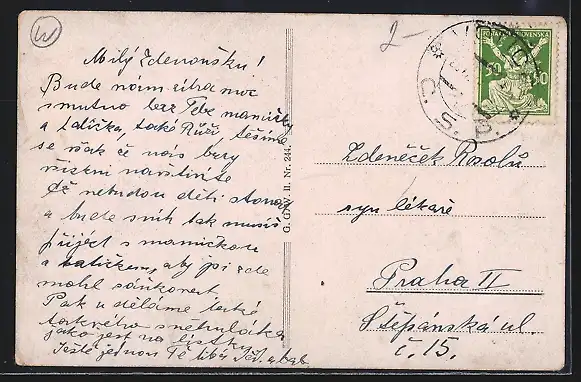 Milý Zdenoušku!
Bude nám zítra moc
smutno bez Tebe mamičky
a tatíčka, také Růži, těšíme
se však že nás brzy
všichni navštívíte
Až nebudou děti stonat
a bude sníh tak musíš
přijeti s mamičkou
a tatíčkem, aby jsi zde
mohl sáňkovat
Pak uděláme také
takového sněhuláka
jako jest na lístku
Ještě jednou Tě líbá
G. G. W. II. Nr. 244.
2-
POŠTA ČESKOSLOVENSKÁ
50 50
Č.S.P.
Zdeněček
syn lékaře
Praha II
Štěpánská ul.
č. 15.
W